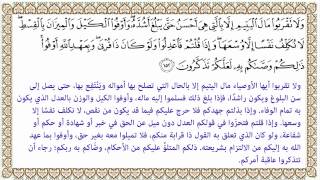 وَلَا تَقْرَبُوا۟ مَالَ ٱلْيَتِيمِ إِلَّا بِٱلَّتِى هِىَ أَحْسَنُ حَتَّىٰ يَبْلُغَ أَشُدَّهُۥ وَأَوْفُوا۟ ٱلْكَيْلَ وَٱلْمِيزَانَ بِٱلْقِسْطِ
لَا نُكَلِّفُ نَفْسًا إِلَّا وُسْعَهَا وَإِذَا قُلْتُمْ فَٱعْدِلُوا۟ وَلَوْ كَانَ ذَا قُرْبَىٰ وَبِعَهْدِ ٱللَّهِ أَوْفُوا۟
ذَٰلِكُمْ وَصَّىٰكُم بِهِۦ لَعَلَّكُمْ تَذَكَّرُونَ ١٥٢
ولا تقربوا أيها الأوصياء مال اليتيم إلا بالحال التي تصلح بها أمواله ويَنْتَفِع بها، حتى يصل إلى
سن البلوغ ويكون راشدًا، فإذا بلغ ذلك فسلموا إليه ماله، وأوفوا الكيل والوزن بالعدل الذي يكون
به تمام الوفاء، وإذا بذلتم جهدكم فلا حرج عليكم فيما قد يكون من نقص، لا نكلف نفسًا إلا
وسعها، وإذا قلتم فتحرَّوا في قولكم العدل دون ميل عن الحق في خبر أو شهادة أو حكم أو
شفاعة، ولو كان الذي تعلق به القول ذا قرابة منكم، فلا تميلوا معه بغير حق، وأوفوا بما عهد
الله به إليكم من الالتزام بشريعته. ذلكم المتلوُّ عليكم من الأحكام، وصَّاكم به ربكم؛ رجاء أن
تتذكروا عاقبة أمركم.